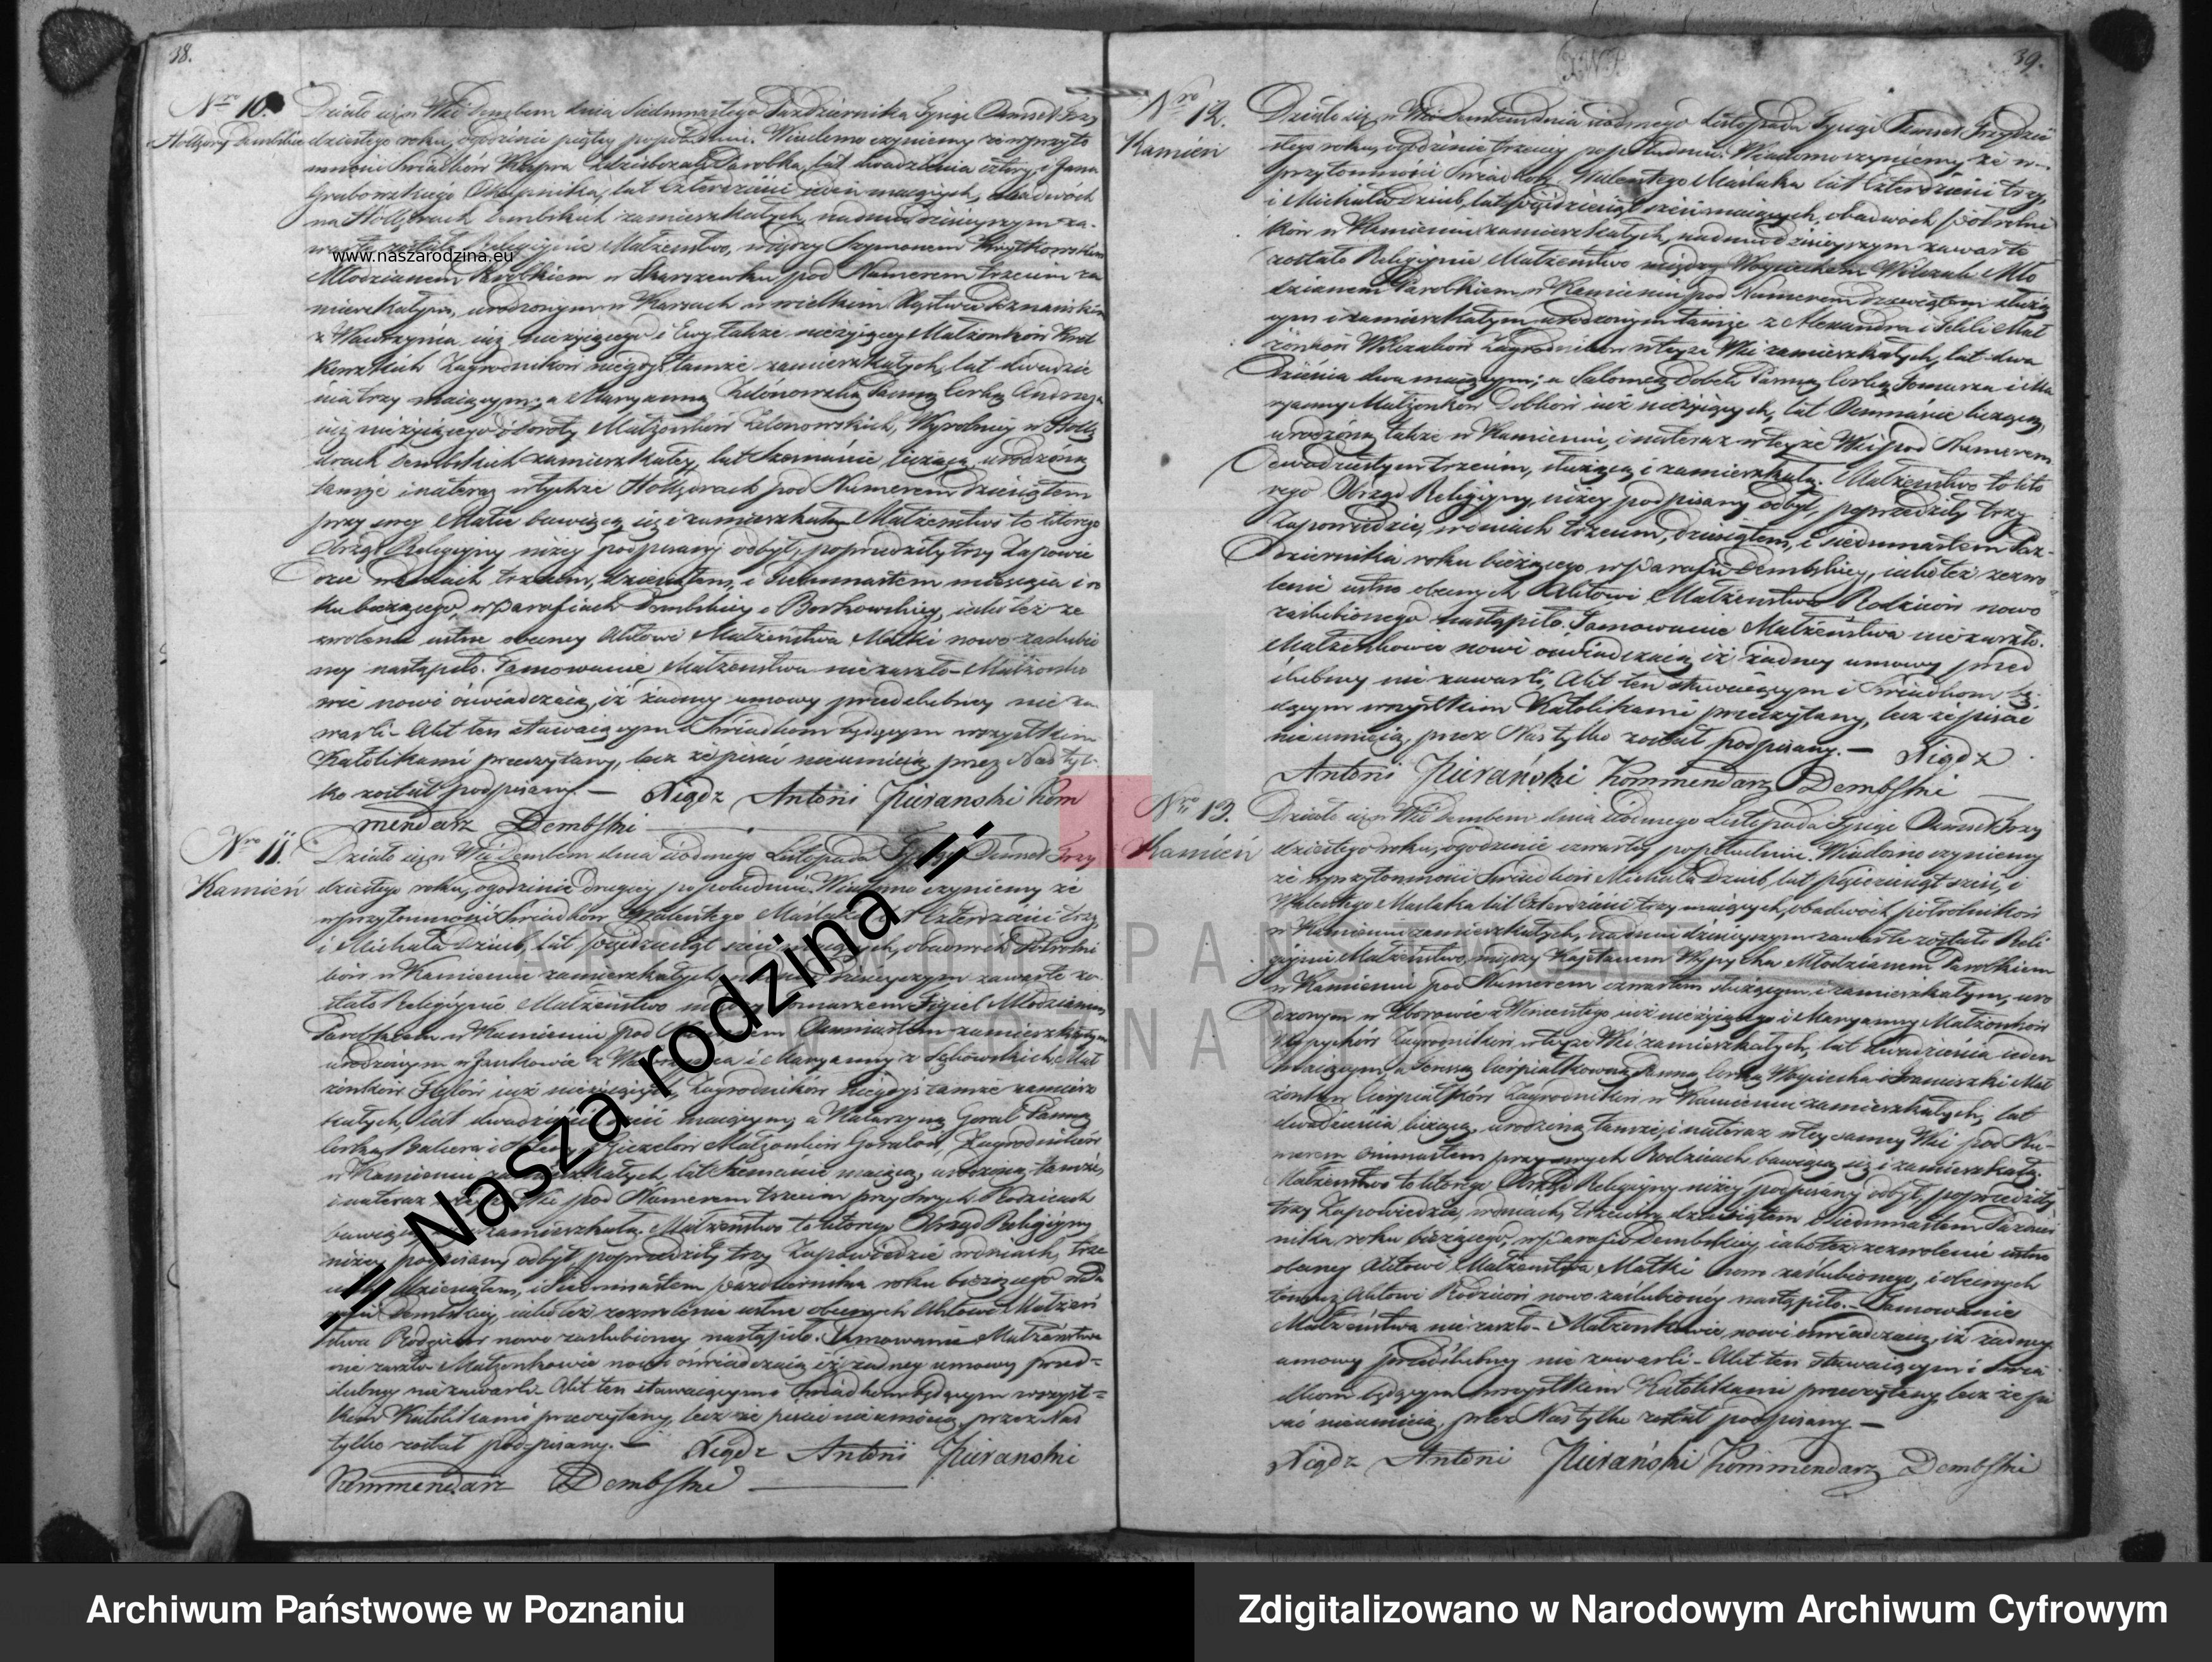 38.
Nro 10.
Hollędry Dembskie
Działo się w Wsi Dembem dnia Siedmnastego Października Tysiąc Ośmset Trzy
dziestego roku, o godzinie piątey popołudniu. Wiadomo czyniemy że w przyto
mności Świadków Parobka, lat dwadzieścia cztery, i Jana
Grabowskiego lat czterdzieści maiących, obadwóch
na Hollędrach Dembskich zamieszkałych, na dniu dzisieyszym za-
warte zostało Religiynie Małżeństwo, między Szymonem
www.naszarodzina.eu
Młodzianem Parobkiem w Skarszewku pod Numerem trzecim za
mieszkałym, urodzonym w w wielkim Xięstwie Poznańskim
z Wawrzyńca iuż nieżyiącego i Ewy także nieżyiącey Małżonków
Zagrodników niegdyś tamże zamieszkałych, lat dwadzie
ścia trzy maiącym; a Maryanną Panną Córką Andrzeja
iuż nieżyiącego i Doroty Małżonków Wyrobnicy w Holle
drach Dembskich zamieszkałey, lat liczącą, urodzoną
tamże i na teraz w tychże Hollędrach pod Numerem dziesiątem
przy swey Matce bawiącą się i zamieszkałą. Małżeństwo to którego
Obrząd Religiyny niżey podpisany odbył, poprzedziły trzy Zapowie
dzie w dniach trzecim, dziesiątem, i Siedmnastem miesiąca i ro
ku bieżącego, w Parafiach Dembskiey i Borkowskiey, iako też ze
zwolenie ustne obecney Aktowi Małżeństwa Matki nowo zaślubio
ney nastąpiło. Tamowanie Małżeństwa nie zaszło – Małżonko
wie nowi oświadczaią, iż żadney umowy przedślubney nie za
warli – Akt ten stawaiącym i Świadkom będącym wszystkim
Katolikami przeczytany, lecz że pisać nieumieią, przez Nas tyl-
ko został podpisany. — Xiądz Antoni Pierański Kom
mendarz Dembski
Nro 11.
Kamień
Działo się w Wsi Dembem dnia siódmego Listopada Tysiąc Ośmset Trzy
dziestego roku, o godzinie drugiey popołudniu. Wiadomo czyniemy że
w przytomności Świadków Walentego Maślaka lat czterdzieści trzy,
i Michała Dziub, lat pięćdziesiąt sześć maiących, obadwóch Półrolni
ków w Kamieniu zamieszkałych, na dniu dzisieyszym zawarte zo-
stało Religiynie Małżeństwo między Tomaszem Figiel Młodzianem
Parobkiem w Kamieniu pod Numerem zamieszkałym
urodzonym w Jankowie z Wawrzyńca i Maryanny z Mał
żonków iuż nieżyiących, Zagrodników niegdyś tamże zamiesz
kałych, lat dwadzieścia sześć maiącym; a Katarzyną Goral Panną
Córką Małżonków Goralów, Zagrodników
w Kamieniu zamieszkałych, lat maiącą, urodzoną tamże,
i na teraz w teyże Wsi pod Numerem trzecim przy swych Rodzicach
bawiącą się i zamieszkałą. Małżeństwo to którego Obrząd Religiyny
niżey podpisany odbył poprzedziły trzy Zapowiedzie w dniach trze
cim, dziesiątem, i Siedmnastem października roku bieżącego w Pa
rafii Dembskiey, iako też zezwolenie ustne obecnych Aktowi Małżeń
stwa Rodziców nowo zaślubioney nastąpiło. Tamowanie Małżeństwa
nie zaszło – Małżonkowie nowi oświadczaią iż żadney umowy przed-
ślubney nie zawarli – Akt ten stawaiącym i Świadkom będącym wszyst-
kim Katolikami przeczytany, lecz że pisać nieumieią, przez Nas
tylko został podpisany. — Xiądz Antoni Pierański
Kommendarz Dembski
39.
Nro 12.
Kamień
Działo się w Wsi Dembem dnia siódmego Listopada Tysiąc Ośmset Trzydzie
stego roku, o godzinie trzeciey popołudniu. Wiadomo czyniemy że w
przytomności Świadków Walentego Maślaka lat czterdzieści trzy,
i Michała Dziub, lat pięćdziesiąt sześć maiących, obadwóch półrolni
ków w Kamieniu zamieszkałych, na dniu dzisieyszym zawarte
zostało Religiynie Małżeństwo między Woyciechem Wilczak Mło
dzianem Parobkiem w Kamieniu pod Numerem dziewiątem służą
cym i zamieszkałym urodzonym tamże z Alexandra i Mał
żonków Wilczaków Zagrodników w teyże Wsi zamieszkałych, lat dwa
dzieścia dwa maiącym; a Salomeą Dobek Panną Córką Tomasza i Ma
ryanny Małżonków Dobków iuż nieżyiących, lat liczącą,
urodzoną także w Kamieniu, i na teraz w teyże Wsi pod Numerem
dwudziestym trzecim, służącą i zamieszkałą. Małżeństwo to któ
rego Obrząd Religiyny niżey podpisany odbył, poprzedziły trzy
Zapowiedzie, w dniach trzecim, dziesiątem, i siedmnastem Paź-
dziernika roku bieżącego w Parafii Dembskiey, iako też zezwo
lenie ustne obecnych Aktowi Małżeństwa Rodziców nowo
zaślubionego nastąpiło. Tamowanie Małżeństwa nie zaszło.
Małżonkowie nowi oświadczaią iż żadney umowy przed
ślubney nie zawarli, Akt ten stawaiącym i Świadkom bę-
dącym wszystkim Katolikami przeczytany, lecz że pisać
nieumieią, przez Nas tylko został podpisany. — Xiądz
Antoni Pierański Kommendarz Dembski
Nro 13.
Kamień
Działo się w Wsi Dembem dnia siódmego Listopada Tysiąc Ośmset Trzy
dziestego roku, o godzinie czwartey popołudniu. Wiadomo czyniemy
że w przytomności Świadków Michała Dziub, lat pięćdziesiąt sześć, i
Walentego Maślaka lat czterdzieści trzy maiących, obadwóch półrolników
w Kamieniu zamieszkałych, na dniu dzisieyszym zawarte zostało Reli
giynie Małżeństwo, między Kajetanem Wypycha Młodzianem Parobkiem
w Kamieniu pod Numerem czwartem służącym i zamieszkałym, uro
dzonym w Zborowie z Wincentego iuż nieżyiącego i Maryanny Małżonków
Wypychów Zagrodników w teyże Wsi zamieszkałych, lat dwadzieścia ieden
maiącym, a Teressą Cierpiatkowną Panną Córką Woyciecha i Franciszki Mał
żonków Zagrodników w Kamieniu zamieszkałych, lat
dwadzieścia liczącą, urodzoną tamże, i na teraz w tey samey Wsi pod Nu-
merem ósmnastem przy swych Rodzicach bawiącą się i zamieszkałą.
Małżeństwo to którego Obrząd Religiyny niżey podpisany odbył, poprzedziły
trzy Zapowiedzie, w dniach, trzecim dziesiątem i siedmnastem Paździer
nika roku bieżącego, w Parafii Dembskiey, iako też zezwolenie ustne
obecney Aktowi Małżeństwa Matki nowo zaślubionego, i obecnych
temuż Aktowi Rodziców nowo zaślubioney nastąpiło. – Tamowanie
Małżeństwa nie zaszło – Małżonkowie nowi oświadczaią, iż żadney
umowy przedślubney nie zawarli – Akt ten stawaiącym i Świa
dkom będącym wszystkim Katolikami przeczytany, lecz że pi
sać nieumieią, przez Nas tylko został podpisany —
Xiądz Antoni Pierański Kommendarz Dembski
ARCHIWUM PAŃSTWOWE
W POZNANIU
" Nasza rodzina "
Archiwum Państwowe w Poznaniu
Zdigitalizowano w Narodowym Archiwum Cyfrowym